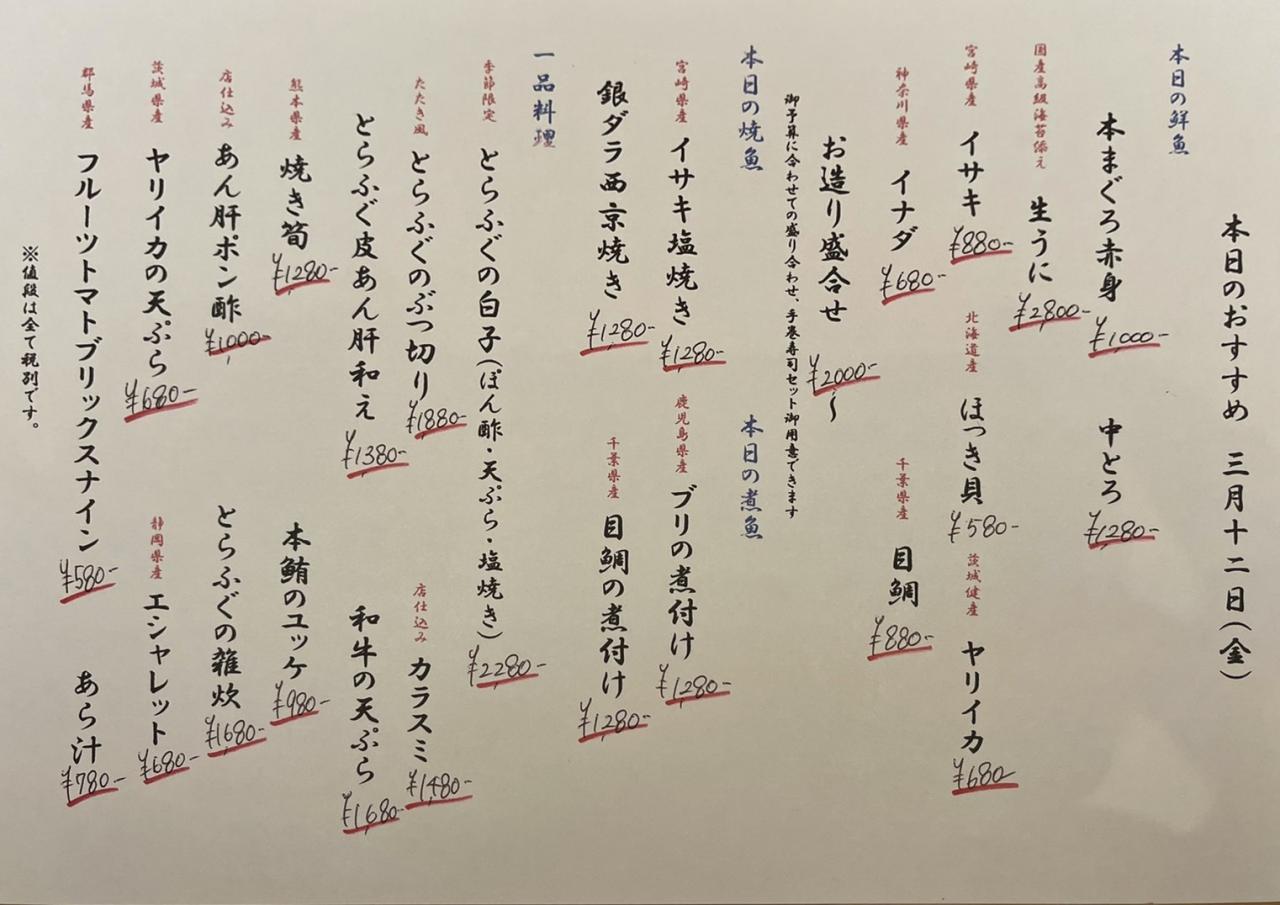 本日のおすすめ 三月十二日(金)
本日の鮮魚
本まぐろ赤身 ¥1,000-
中とろ ¥1,280-
国産高級海苔添え 生うに ¥2,800-
宮崎県産 イサキ ¥880-
北海道産 ほっき貝 ¥580-
茨城健産 ヤリイカ ¥680-
神奈川県産 イナダ ¥680-
千葉県産 目鯛 ¥880-
お造り盛合せ ¥2000-〜
御予算に合わせての盛り合わせ、手巻寿司セット御用意できます
本日の焼魚
宮崎県産 イサキ塩焼き ¥1,280-
銀ダラ西京焼き ¥1,280-
本日の煮魚
鹿児島県産 ブリの煮付け ¥1,280-
千葉県産 目鯛の煮付け ¥1,280-
一品料理
季節限定 とらふぐの白子(ぽん酢・天ぷら・塩焼き) ¥2,280-
たたき風 とらふぐのぶつ切り ¥1,880-
店仕込み カラスミ ¥1,480-
とらふぐ皮あん肝和え ¥1,380-
和牛の天ぷら ¥1,680-
熊本県産 焼き筍 ¥1,280-
本鮪のユッケ ¥980-
店仕込み あん肝ポン酢 ¥1,000-
とらふぐの雑炊 ¥1,680-
茨城県産 ヤリイカの天ぷら ¥680-
静岡県産 エシャレット ¥680-
群馬県産 フルーツトマトブリックスナイン ¥580-
あら汁 ¥780-
※値段は全て税別です。